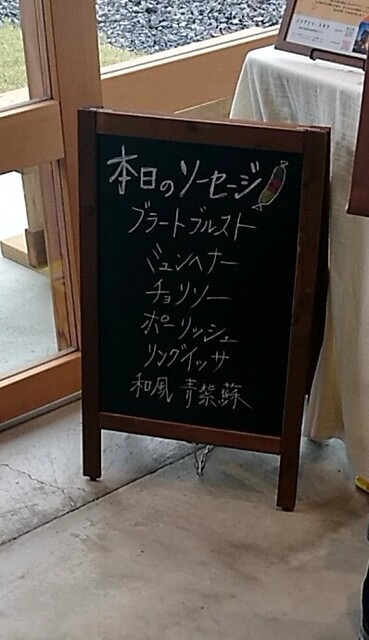 本日のソーセージ
ブラートブルスト
ミュンヘナー
チョリソー
ポーリッシュ
リングイッサ
和風 青紫蘇